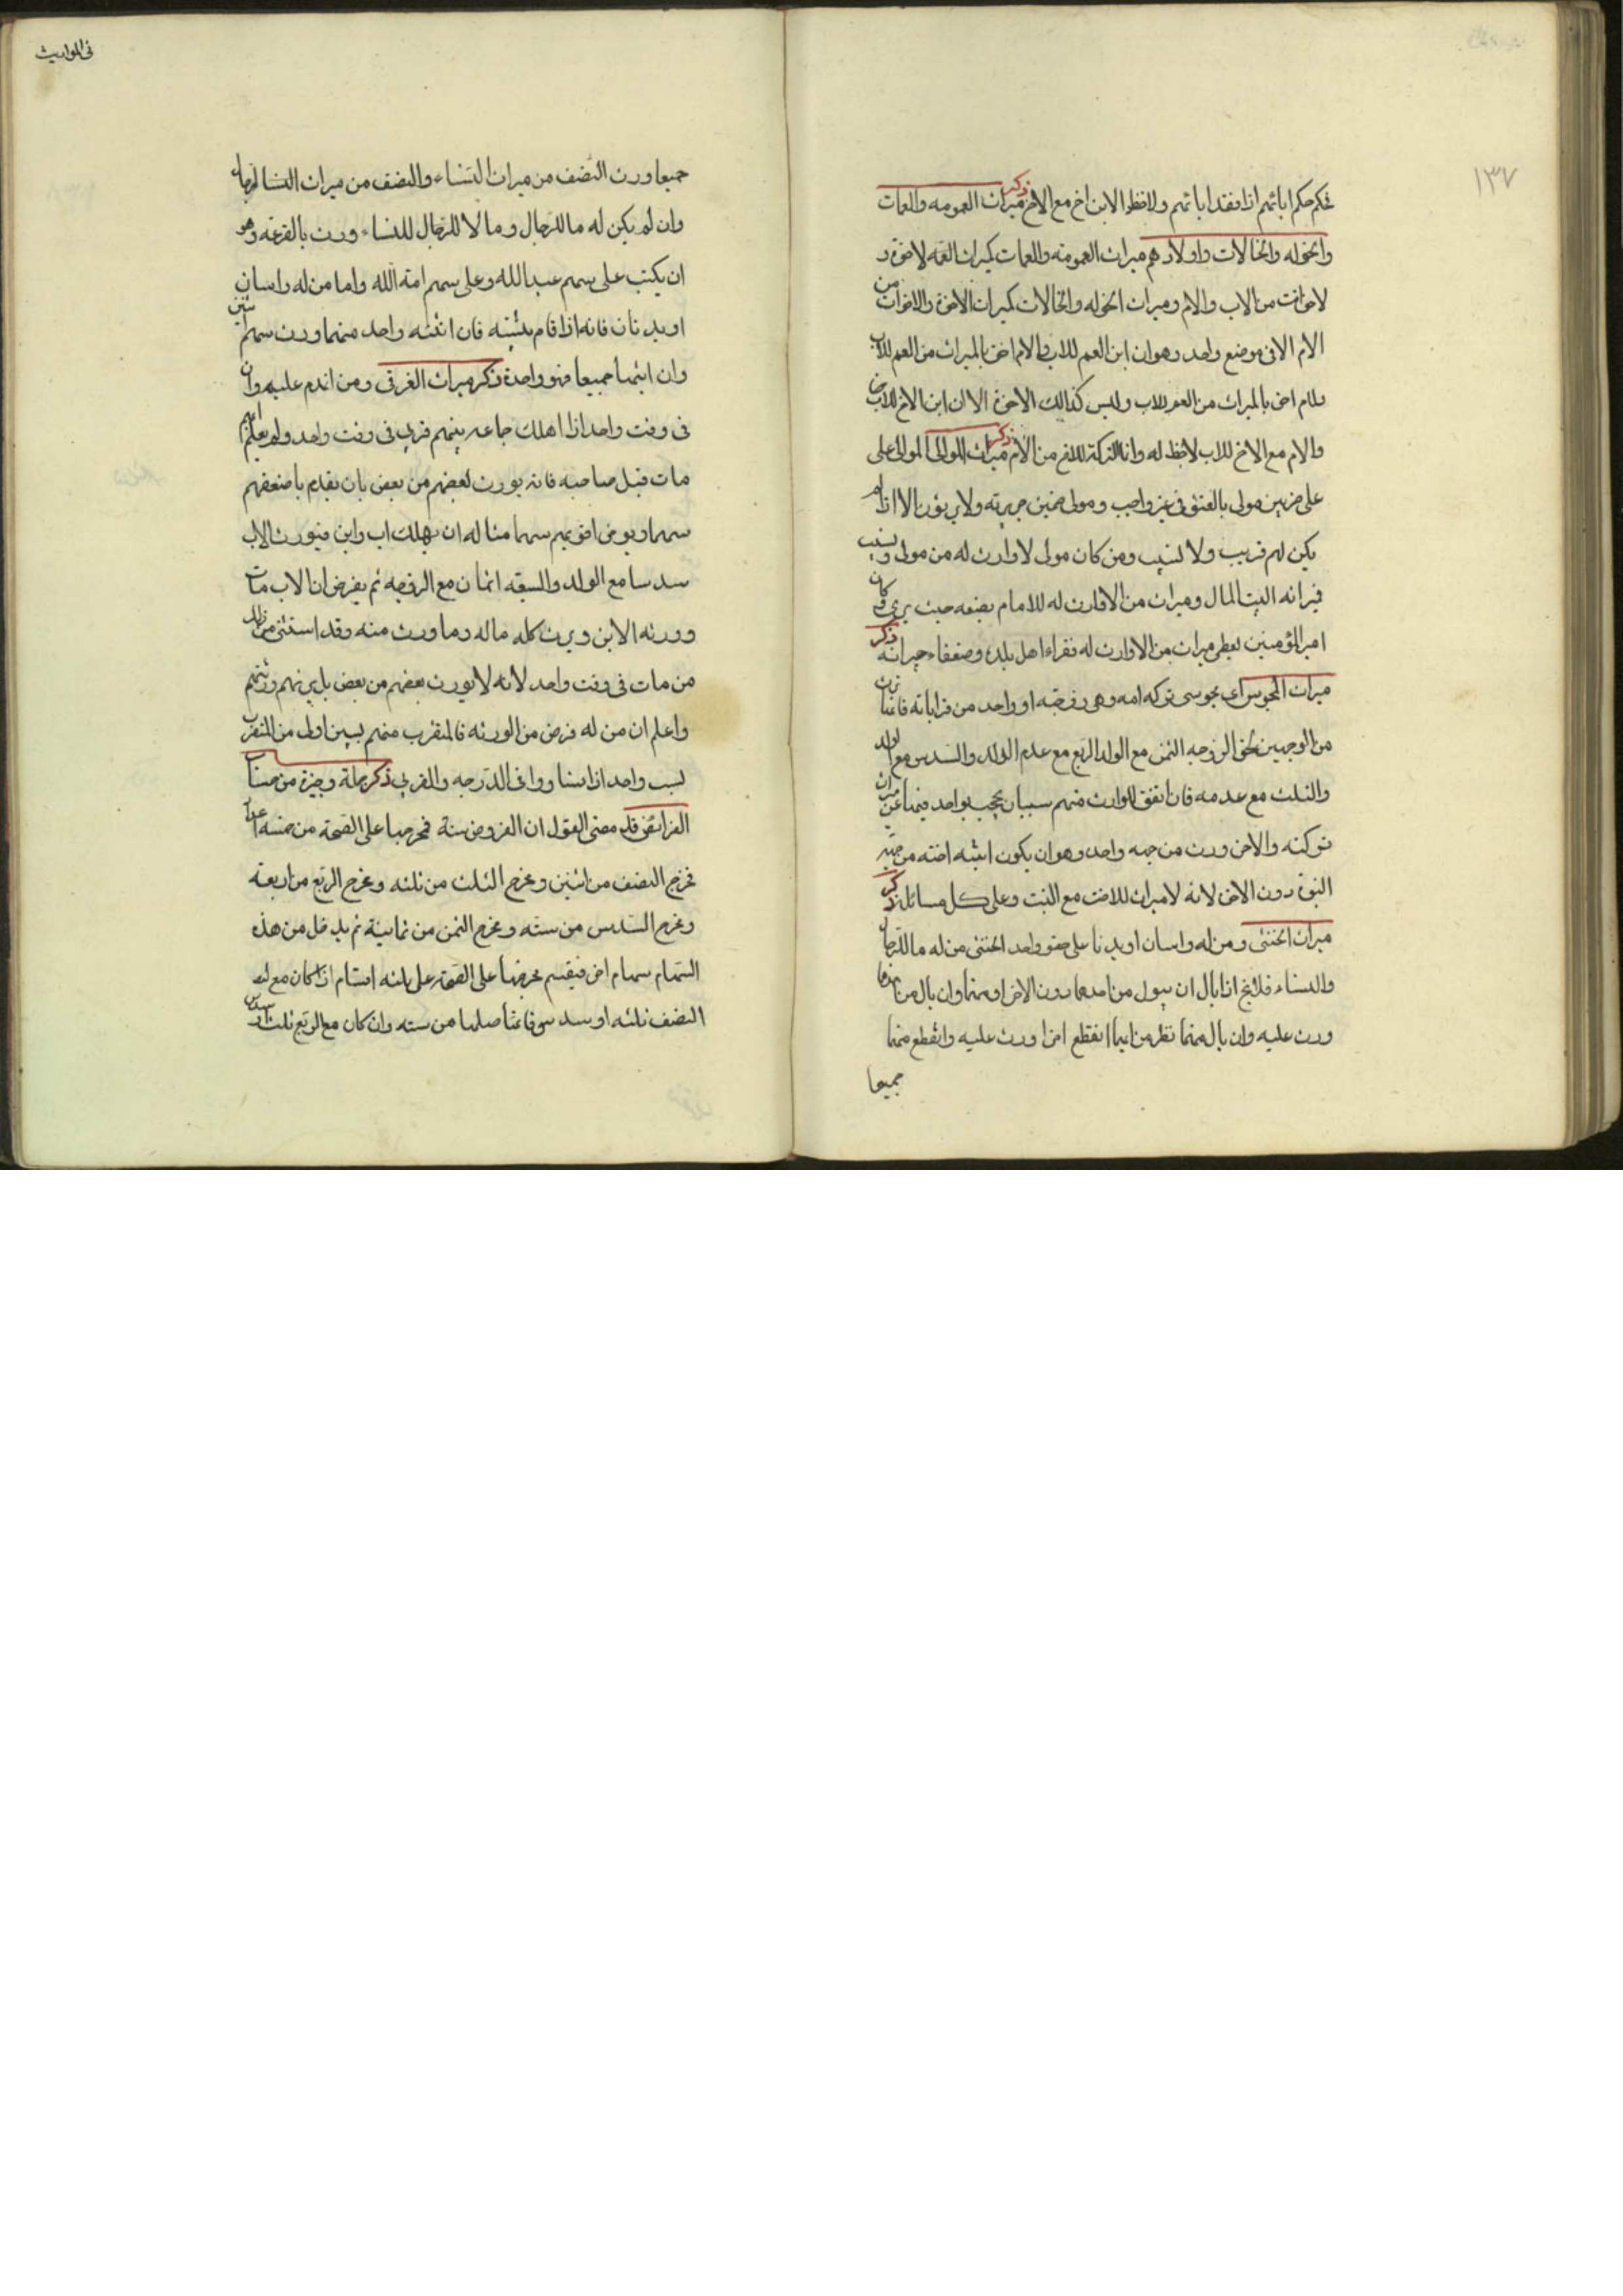 ١٣٧
فحكم حكم ابائهم اذا فقد ابائهم ولاحظ لابن اخ مع الاخ ذكر ميراث العمومه والعمات
والخوله والخالات واولادهم ميراث العمومة والعمات كميراث العمه لاخوة و
لاخوات من الاب والام وميراث الخوله والخالات كميراث الاخوة والاخوات من
الام الا فى موضع واحد وهو ان ابن العم للاب والام احق بالميراث من العم للاب
احق بالميراث من العم للاب وليس كذالك الاخوة الا ان ابن الاخ للاب
والام مع الاخ للاب لاحظ له وانما التركة للاخ من الام ذكر ميراث الموالى الموالى على
على ضربين مولى بالعتق فى غير واجب ومولى ضمن جريرته ولا يرثون الا اذا لم
يكن لهم قريب ولا نسيب ومن كان مولى لاوارث له من مولى ونسيب
فميراثه البيت المال وميراث من لاوارث له للامام يضعه حيث يرى وكان
امير المؤمنين يعطى ميراث من لاوارث له فقراء اهل بلده وضعفاء جيرانه ذكر
ميراث المجوس اى مجوسى تركه امه وهى زوجته او واحد من قراباته فانها ترث
من الوجهين بحق الزوجه الثمن مع الولد الربع مع عدم الولد والسدس مع الولد
والثلث مع عدمه فان اتفق للوارث منهم سببان يحجب بواحد منهما عن ميراث
تركته والاخر ورث من جهه واحد وهو ان يكون ابنته اخته من جهة
البنوة دون الاخر لانه لا ميراث للاخت مع البنت وعلى كل مسائله ذكر
ميراث الخنثى ومن له راسان او بدنا على حقو واحد الخنثى من له ما للرجال
والنساء فلايخ اذا بال ان يبول من احدهما دون الاخر او منهما وان بال من احدهما
ورث عليه وان بال منهما نظر من ايها انقطع اخرا ورث عليه وانقطع منهما
جميعا
فى المواريث
جميعا ورث النصف من ميراث النساء والنصف من ميراث النسا الرجال
وان لم يكن له ما للرجال وما لا للرجال للنساء ورث بالقرعه وهو
ان يكتب على سهم عبد الله وعلى سهم امة الله واما من له راسان
او بدنان فانه اذا قام بنيته فان انتبه واحد منهما ورث سهم اثنين
وان انتبها جميعا فهو واحدة ذكر ميراث الغرقى ومن انهدم عليهم وان
فى وقت واحد اذا هلك جماعه بينهم قربى فى وقت واحد ولم يعلم ايهم
مات قبل صاحبه فانه يورث بعضهم من بعض بان يقدم باضعفهم
سهما ويوخر اقويهم سهما مثاله ان يهلك اب وابن فيورث الاب
سدسا مع الولد والسبعه اثمان مع الزوجه ثم يفرض ان الاب مات
وورثه الابن ويرث كله ماله وما ورث منه وقد استثنى من ذلك
من مات فى وقت واحد لانه لايورث بعضهم من بعض بل يرثهم ورثتهم
واعلم ان من له فرض من الورثه فالمتقرب منهم بسببين اولى من المتقرب
بسبب واحد اذا تساووا فى الدرجه والقربى ذكر جملة وجيزة من حساب
الفرائض قد مضى القول ان الفروض ستة فمخرجها على الصحة من خمسه اعداد
مخرج النصف من اثنين ومخرج الثلث من ثلثه ومخرج الربع من اربعة
ومخرج السدس من سته ومخرج الثمن من ثمانية ثم يدخل من هذه
السهام سهام اخر فيقسم مخرجها على الصحة على ثلثه اقسام اذا كان مع
النصف ثلثه او سدس فانما اصلها من سته وان كان مع الربع ثلث او سدس